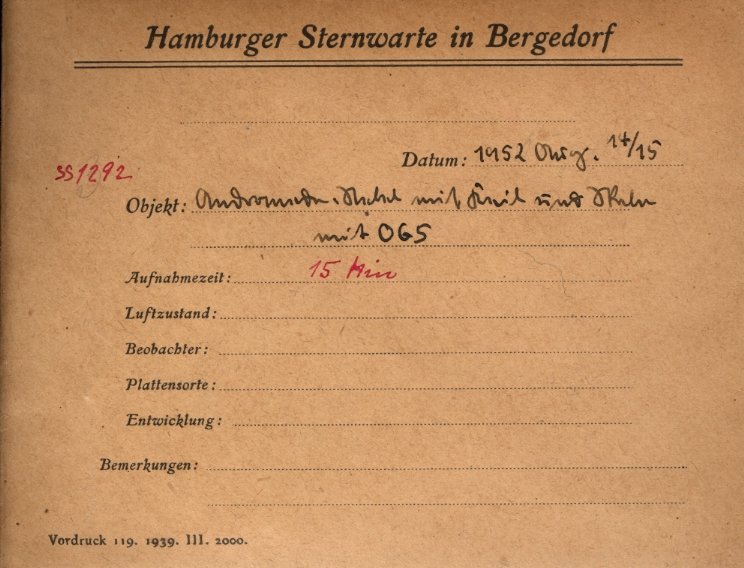 Hamburger Sternwarte in Bergedorf
Datum: 1952 Aug. 14/15
SS1292
Objekt: Andromeda-Nebel mit Keil und Skala
mit OG5
Aufnahmezeit: 15 Min
Luftzustand:
Beobachter:
Plattensorte:
Entwicklung:
Bemerkungen:
Vordruck 119. 1939. III. 2000.